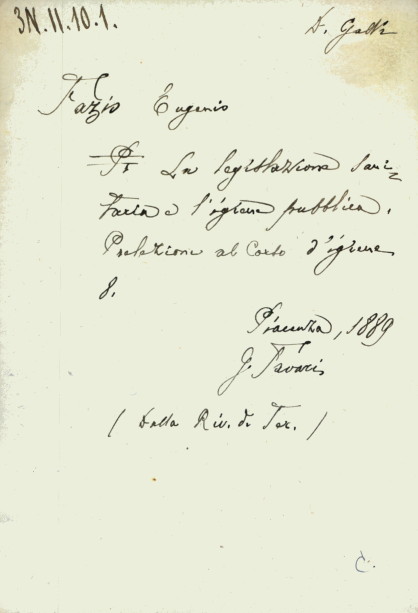 3N.II.10.1.
D. Galli
Fazio Eugenio
La legislazione sani-
taria e l'igiene pubblica.
Prelezione al Corso d'igiene
8.
Piacenza, 1889
G. Favari
(Dalla Riv. di Ter.)
C.